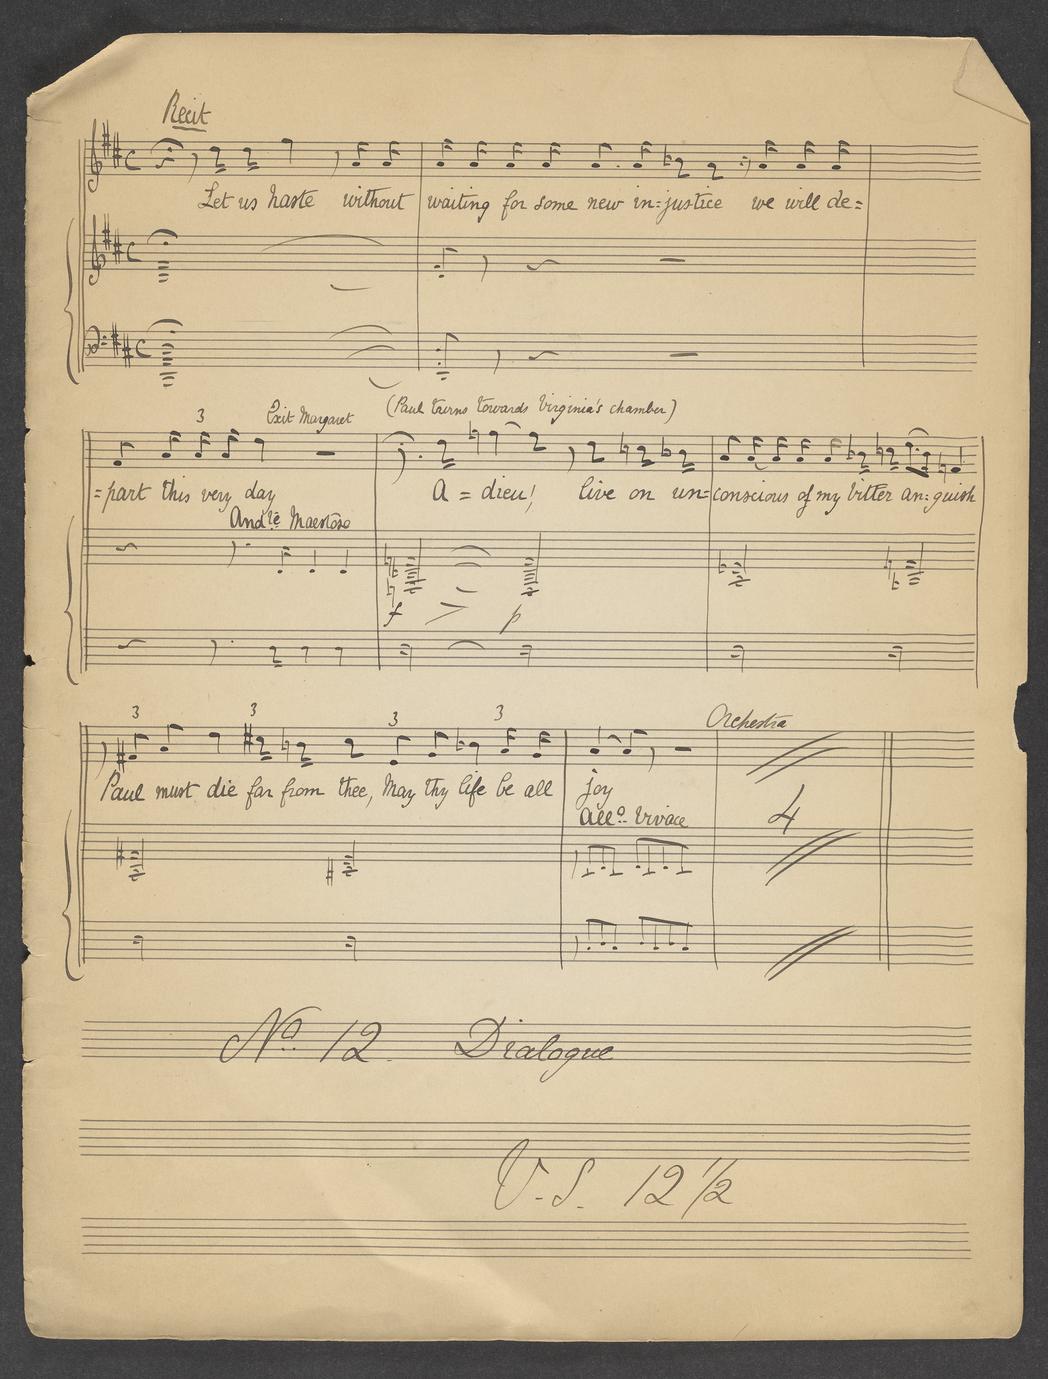 Recit
Let us haste without waiting for some new in=justice we will de=
3 Exit Margaret (Paul turns towards Virginia's chamber)
=part this very day A = dieu! live on un=conscious of my bitter an=guish
Andte Maestoso
f > p
3 3 3 3 Orchestra
Paul must die far from thee, May thy life be all joy
Allo. Vivace 4
No 12. Dialogue
V. S. 12 1/2